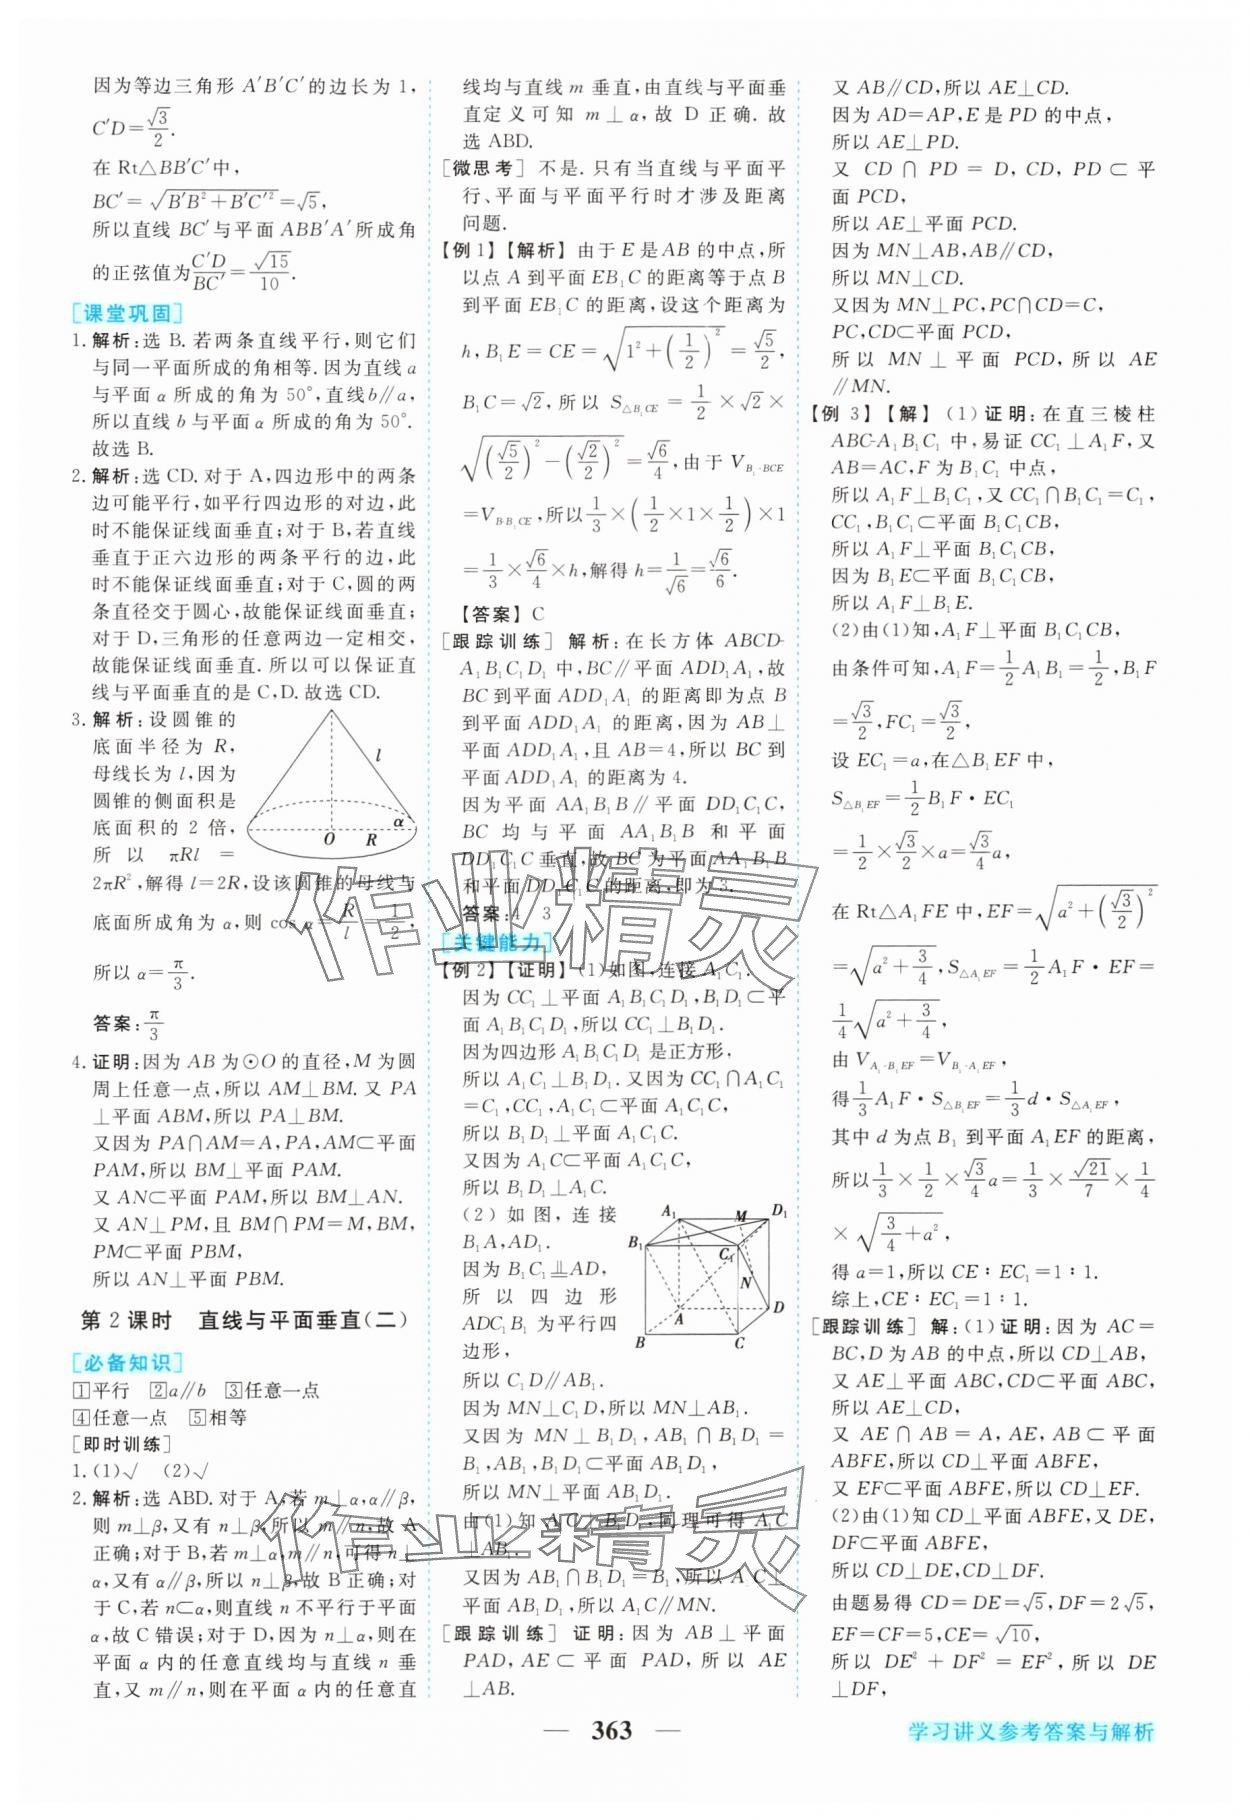 因为等边三角形 A′B′C′的边长为 1,
C′D=√3/2.
在 Rt△BB′C′中,
BC′=√(B′B²+B′C′²)=√5,
所以直线 BC′与平面 ABB′A′所成角
的正弦值为C′D/BC′=√15/10.
[课堂巩固]
1. 解析:选 B. 若两条直线平行,则它们
与同一平面所成的角相等. 因为直线 a
与平面 α 所成的角为 50°,直线b∥a,
所以直线 b 与平面 α 所成的角为 50°.
故选 B.
2. 解析:选 CD. 对于 A,四边形中的两条
边可能平行,如平行四边形的对边,此
时不能保证线面垂直;对于 B,若直线
垂直于正六边形的两条平行的边,此
时不能保证线面垂直;对于 C,圆的两
条直径交于圆心,故能保证线面垂直;
对于 D,三角形的任意两边一定相交,
故能保证线面垂直. 所以可以保证直
线与平面垂直的是 C,D. 故选 CD.
3. 解析:设圆锥的
底面半径为 R,
母线长为 l,因为
圆锥的侧面积是
底面积的 2 倍,
所以 πRl =
2πR²,解得 l=2R,设该圆锥的母线与
底面所成角为 α,则 cos α=R/l=1/2,
所以 α=π/3.
答案:π/3
l
α
O R
4. 证明:因为 AB 为⊙O 的直径,M 为圆
周上任意一点,所以 AM⊥BM. 又 PA
⊥平面 ABM,所以 PA⊥BM.
又因为 PA∩AM=A,PA,AM⊂平面
PAM,所以 BM⊥平面 PAM.
又 AN⊂平面 PAM,所以 BM⊥AN.
又 AN⊥PM,且 BM∩PM=M,BM,
PM⊂平面 PBM,
所以 AN⊥平面 PBM.
第 2 课时 直线与平面垂直(二)
[必备知识]
①平行 ②a∥b ③任意一点
④任意一点 ⑤相等
[即时训练]
1. (1)√ (2)√
2. 解析:选 ABD. 对于 A,若 m⊥α,α∥β,
则 m⊥β,又有 n⊥β,所以 m∥n,故 A
正确;对于 B,若 m⊥α,m∥n,可得 n⊥
α,又有 α∥β,所以 n⊥β,故 B 正确;对
于 C,若 n⊂α,则直线 n 不平行于平面
α,故 C 错误;对于 D,因为 n⊥α,则在
平面 α 内的任意直线均与直线 n 垂
直,又 m∥n,则在平面 α 内的任意直
线均与直线 m 垂直,由直线与平面垂
直定义可知 m⊥α,故 D 正确. 故
选 ABD.
[微思考] 不是. 只有当直线与平面平
行、平面与平面平行时才涉及距离
问题.
【例 1】【解析】 由于 E 是 AB 的中点,所
以点 A 到平面 EB₁C 的距离等于点 B
到平面 EB₁C 的距离,设这个距离为
h,B₁E=CE=√(1²+(1/2)²)=√5/2,
B₁C=√2,所以 S△B₁CE=1/2×√2×
√((√5/2)²-(√2/2)²)=√6/4,由于 V_{B₁-BCE}
=V_{B-B₁CE},所以1/3×(1/2×1×1/2)×1
=1/3×√6/4×h,解得 h=1/√6=√6/6.
【答案】 C
[跟踪训练] 解析:在长方体 ABCD-
A₁B₁C₁D₁ 中,BC∥平面 ADD₁A₁,故
BC 到平面 ADD₁A₁ 的距离即为点 B
到平面 ADD₁A₁ 的距离,因为 AB⊥
平面 ADD₁A₁,且 AB=4,所以 BC 到
平面 ADD₁A₁ 的距离为 4.
因为平面 AA₁B₁B∥平面 DD₁C₁C,
BC 均与平面 AA₁B₁B 和平面
DD₁C₁C 垂直,故 BC 为平面 AA₁B₁B
和平面 DD₁C₁C 的距离,即为 3.
答案:4 3
[关键能力]
【例 2】【证明】 (1)如图,连接 A₁C₁.
因为 CC₁⊥平面 A₁B₁C₁D₁,B₁D₁⊂平
面 A₁B₁C₁D₁,所以 CC₁⊥B₁D₁.
因为四边形 A₁B₁C₁D₁ 是正方形,
所以 A₁C₁⊥B₁D₁. 又因为 CC₁∩A₁C₁
=C₁,CC₁,A₁C₁⊂平面 A₁C₁C,
所以 B₁D₁⊥平面 A₁C₁C.
又因为 A₁C⊂平面 A₁C₁C,
所以 B₁D₁⊥A₁C.
(2)如图,连接
B₁A,AD₁.
因为 B₁C₁⫫AD,
所以四边形
ADC₁B₁ 为平行四
边形,
A₁ M D₁
B₁ C₁
N
A D
B C
所以 C₁D∥AB₁.
因为 MN⊥C₁D,所以 MN⊥AB₁.
又因为 MN⊥B₁D₁,AB₁∩B₁D₁=
B₁,AB₁,B₁D₁⊂平面 AB₁D₁,
所以 MN⊥平面 AB₁D₁.
由(1)知 A₁C⊥B₁D₁,同理可得 A₁C
⊥AB₁.
又因为 AB₁∩B₁D₁=B₁,所以 A₁C⊥
平面 AB₁D₁,所以 A₁C∥MN.
[跟踪训练] 证明:因为 AB⊥平面
PAD,AE⊂平面 PAD,所以 AE
⊥AB.
又 AB∥CD,所以 AE⊥CD.
因为 AD=AP,E 是 PD 的中点,
所以 AE⊥PD.
又 CD∩PD=D,CD,PD⊂平
面 PCD,
所以 AE⊥平面 PCD.
因为 MN⊥AB,AB∥CD,
所以 MN⊥CD.
又因为 MN⊥PC,PC∩CD=C,
PC,CD⊂平面 PCD,
所以 MN⊥平面 PCD,所以 AE
∥MN.
【例 3】【解】 (1)证明:在直三棱柱
ABC-A₁B₁C₁ 中,易证 CC₁⊥A₁F,又
AB=AC,F 为 B₁C₁ 中点,
所以 A₁F⊥B₁C₁,又 CC₁∩B₁C₁=C₁,
CC₁,B₁C₁⊂平面 B₁C₁CB,
所以 A₁F⊥平面 B₁C₁CB,
因为 B₁E⊂平面 B₁C₁CB,
所以 A₁F⊥B₁E.
(2)由(1)知,A₁F⊥平面 B₁C₁CB,
由条件可知,A₁F=1/2A₁B₁=1/2,B₁F
=√3/2,FC₁=√3/2,
设 EC₁=a,在△B₁EF 中,
S△B₁EF=1/2B₁F·EC₁
=1/2×√3/2×a=√3/4a,
在 Rt△A₁FE 中,EF=√(a²+(√3/2)²)
=√(a²+3/4),S△A₁EF=1/2A₁F·EF=
1/4√(a²+3/4),
由 V_{A₁-B₁EF}=V_{B₁-A₁EF},
得1/3A₁F·S△B₁EF=1/3d·S△A₁EF,
其中 d 为点 B₁ 到平面 A₁EF 的距离,
所以1/3×1/2×√3/4a=1/3×√21/7×1/4
×√(3/4+a²),
得 a=1,所以 CE∶EC₁=1∶1.
综上,CE∶EC₁=1∶1.
[跟踪训练] 解:(1)证明:因为 AC=
BC,D 为 AB 的中点,所以 CD⊥AB,
又 AE⊥平面 ABC,CD⊂平面 ABC,
所以 AE⊥CD,
又 AE∩AB=A,AE,AB⊂平面
ABFE,所以 CD⊥平面 ABFE,
又 EF⊂平面 ABFE,所以 CD⊥EF.
(2)由(1)知 CD⊥平面 ABFE,又 DE,
DF⊂平面 ABFE,
所以 CD⊥DE,CD⊥DF.
由题易得 CD=DE=√5,DF=2√5,
EF=CF=5,CE=√10,
所以 DE²+DF²=EF²,所以 DE
⊥DF,
— 363 —
学习讲义参考答案与解析
作业精灵
作业精灵